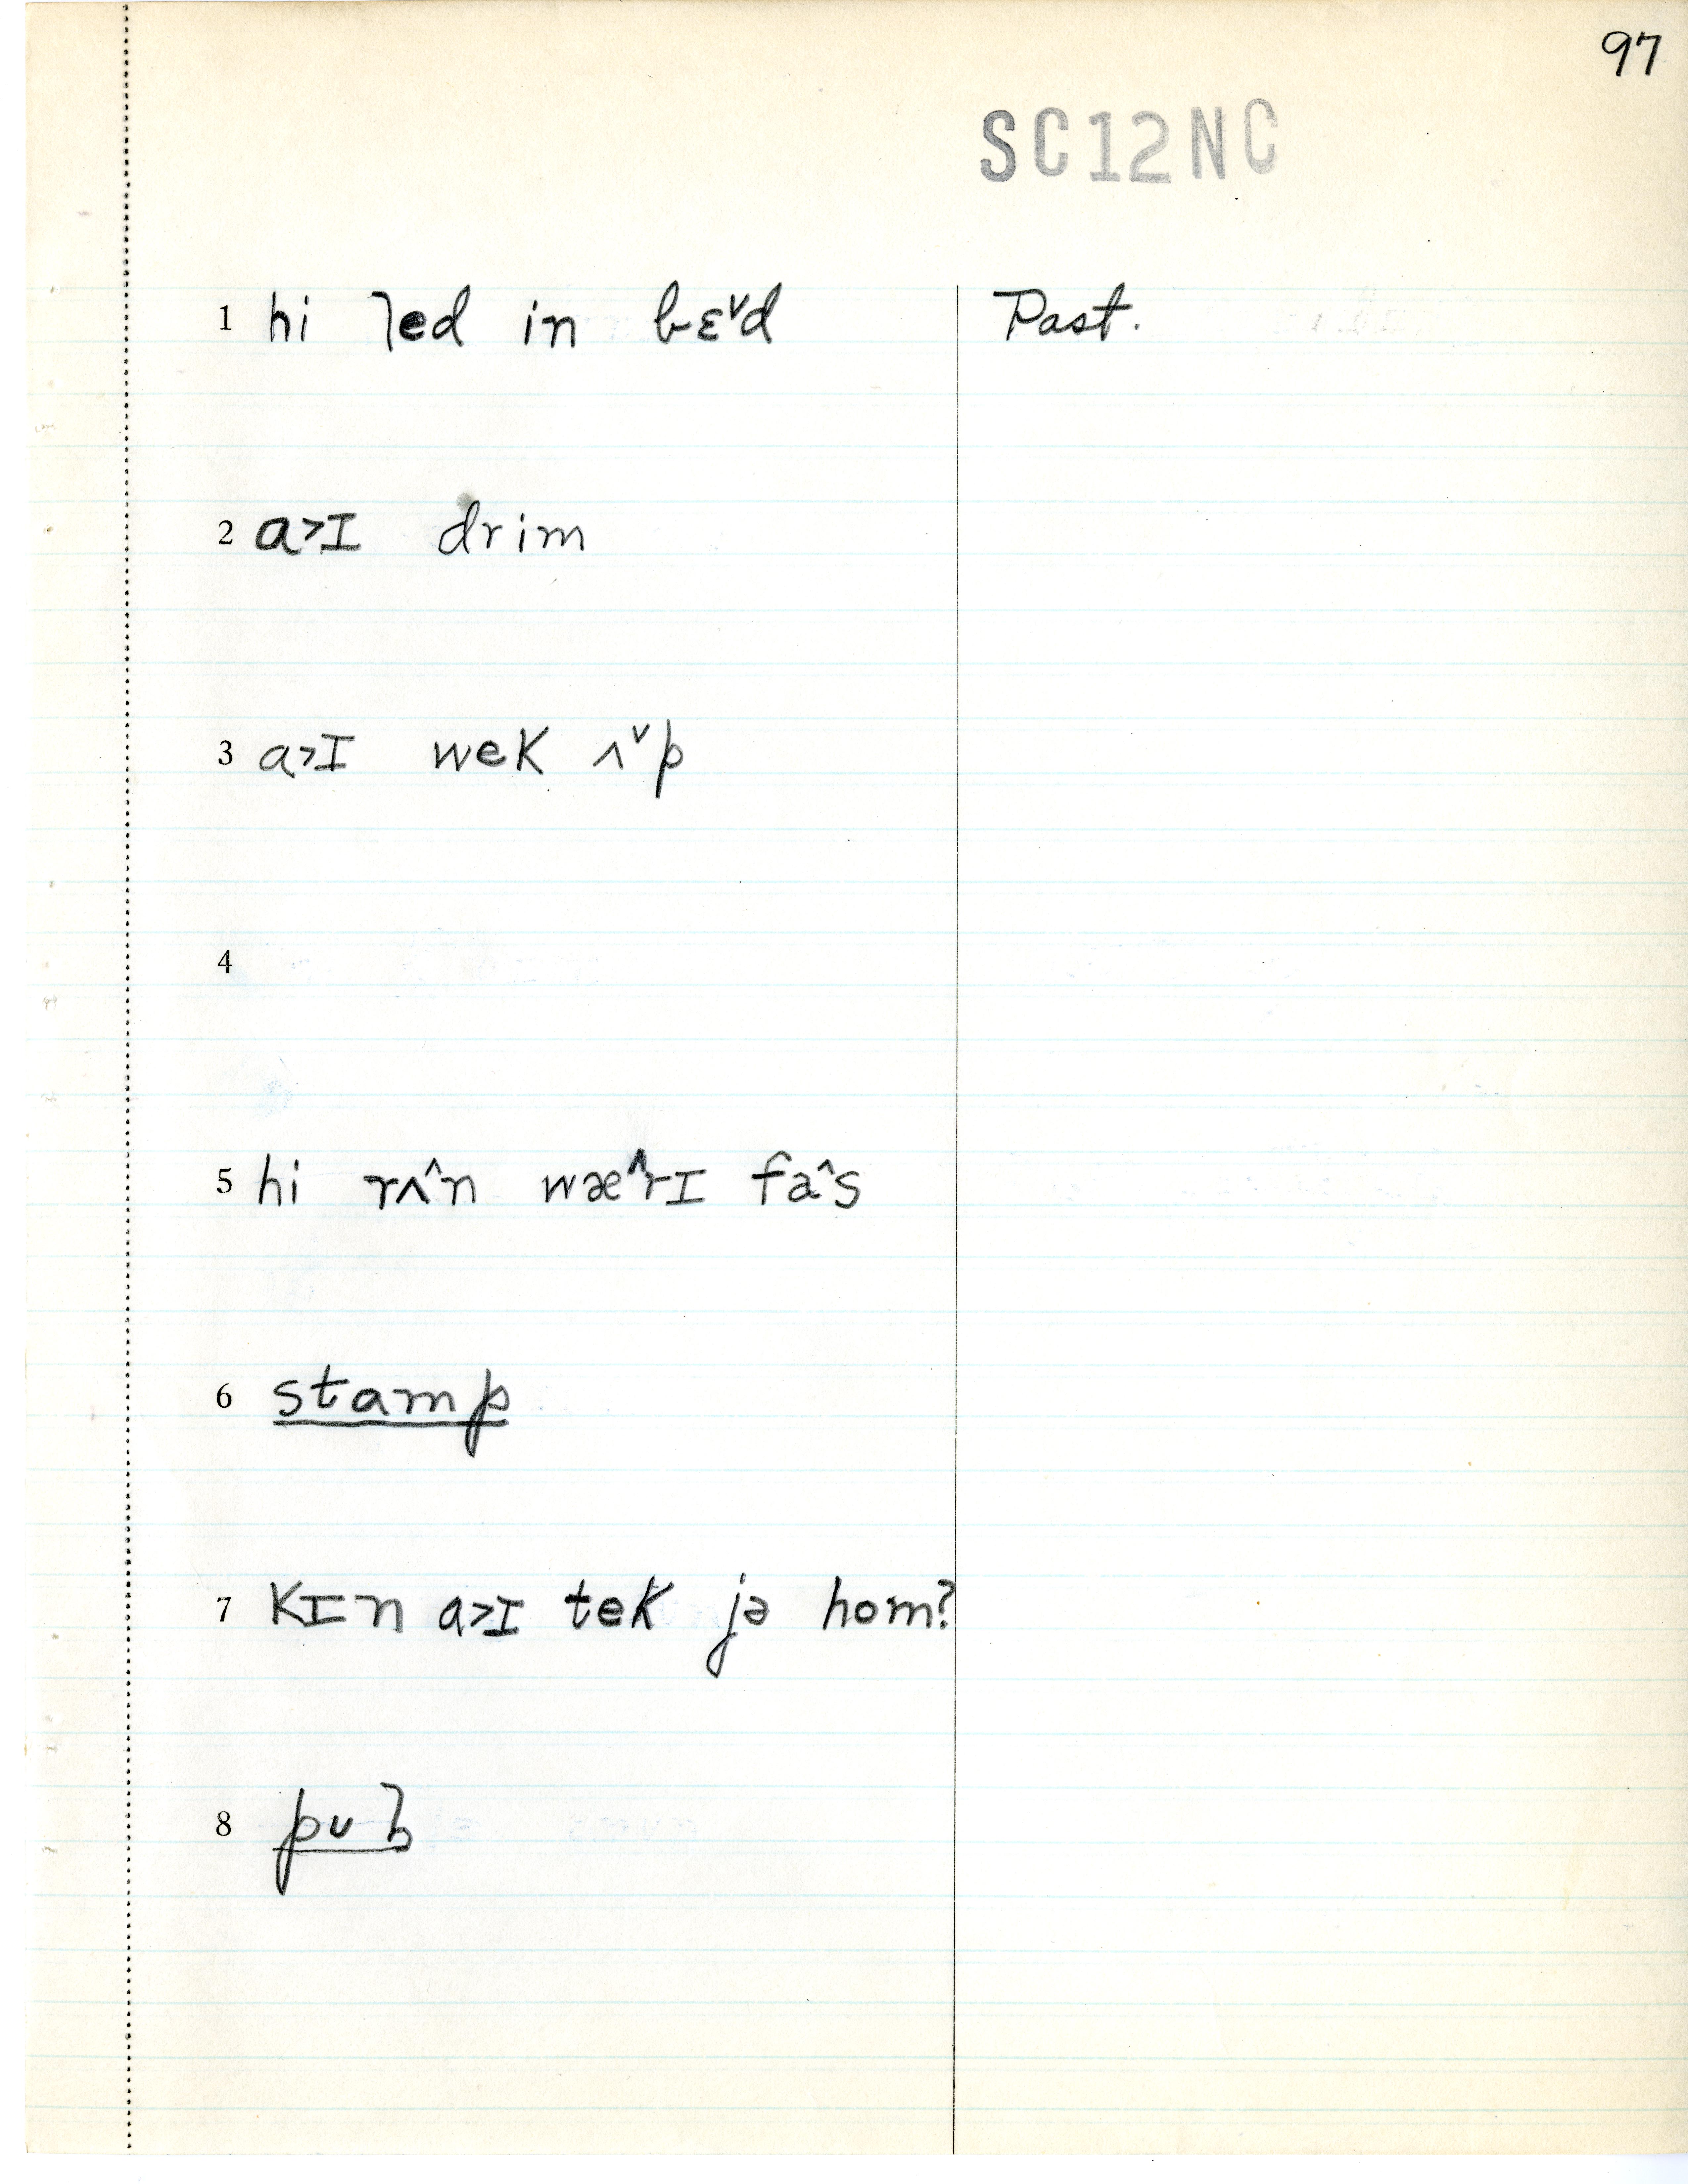 97
SC12NC
1 hi ꞁed in bɛ˅d Past.
2 a>ɪ drim
3 a>ɪ wek ʌ˅p
4
5 hi rʌ^n wæ^rɪ fa^s
6 stamp
7 kɪn a>ɪ tek jə hom?
8